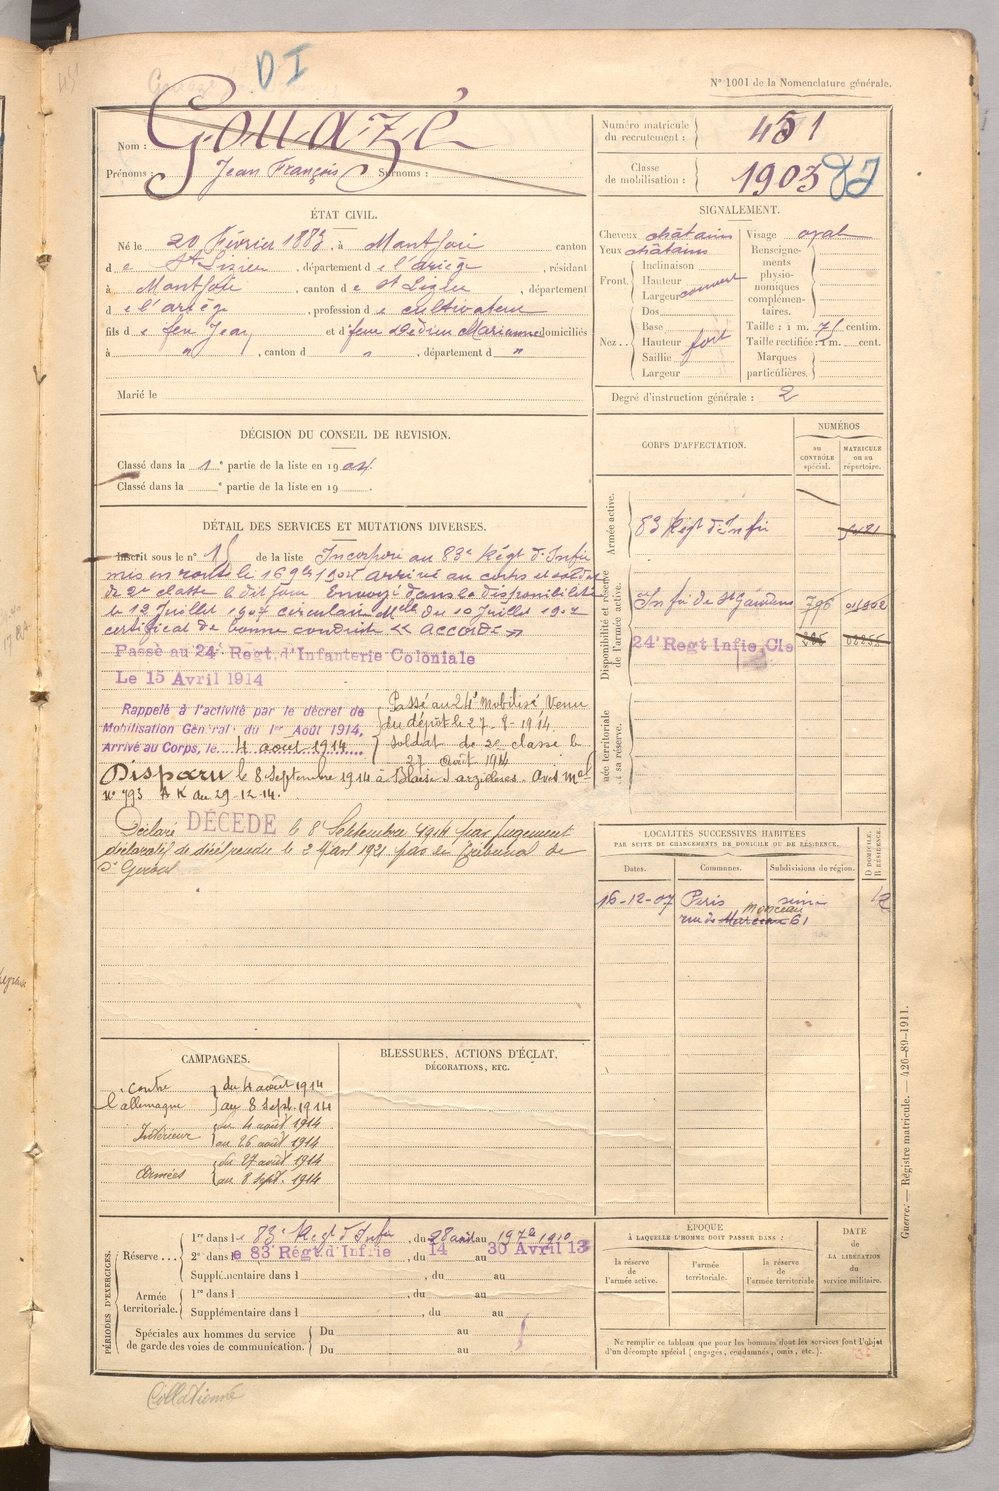 D I
N° 1001 de la Nomenclature générale.
Nom : Gouazé
Prénoms : Jean François Surnoms :
Numéro matricule du recrutement : 451
Classe de mobilisation : 1903
ÉTAT CIVIL.
Né le 20 Février 1883, à Montjoie canton
de St Lizier, département de l'ariège, résidant
à Montjoie, canton de St Lizier, département
de l'ariège, profession de cultivateur
fils de feu Jean et de feue Dédieu Marianne domiciliés
à " , canton d " , département d "
Marié le
SIGNALEMENT.
Cheveux châtains Visage oval
Yeux châtains
Front. Inclinaison
Hauteur
Largeur couvert
Nez.. Dos
Base
Hauteur fort
Saillie
Largeur
Renseignements physionomiques complémentaires.
Taille : 1 m. 75 centim.
Taille rectifiée : 1 m. cent.
Marques particulières.
Degré d'instruction générale : 2
DÉCISION DU CONSEIL DE REVISION.
Classé dans la 1e partie de la liste en 1904.
Classé dans la e partie de la liste en 19 .
CORPS D'AFFECTATION.
NUMÉROS
au CONTRÔLE spécial.
MATRICULE ou au répertoire.
Armée active.
83 Régt d'Infie
Disponibilité et réserve de l'armée active.
Infie de St Gaudens 796
24e Regt Infie Cle
Armée territoriale et sa réserve.
DÉTAIL DES SERVICES ET MUTATIONS DIVERSES.
Inscrit sous le n° 15 de la liste Incorporé au 83e Régt d'Infie
mis en route le 16 9bre arrivé au corps et soldat
de 2e classe le dit jour. Envoyé dans la disponibilité
le 12 Juillet 1907 circulaire Mlle du 10 Juillet 1907
certificat de bonne conduite « accordé »
Passé au 24e Regt. d'Infanterie Coloniale
Le 15 Avril 1914
Rappelé à l'activité par le décret de
Mobilisation Générale du 1er Août 1914,
Arrivé au Corps, le 4 aout 1914
Passé au 24e mobilisé, Venu
du dépôt le 27-8-1914
soldat de 2e classe le
27 Août 1914
Disparu le 8 septembre 1914 à Blaise s/ arzillères. Avis mel
N° 793 A K du 29-12-14.
Déclaré DÉCÉDÉ le 8 Septembre 1914 par jugement
déclaratif de décès rendu le 2 Mars 1921 par le Tribunal de
St Girons
LOCALITÉS SUCCESSIVES HABITÉES
PAR SUITE DE CHANGEMENTS DE DOMICILE OU DE RÉSIDENCE.
Dates. Communes. Subdivisions de région. D DOMICILE. R RÉSIDENCE.
16-12-07 Paris seine
rue de Marceau Monceau 61
CAMPAGNES.
contre l'allemagne du 4 août 1914
au 8 sept. 1914
Intérieur du 4 août 1914
au 26 août 1914
Armées du 27 août 1914
au 8 sept. 1914
BLESSURES, ACTIONS D'ÉCLAT,
DÉCORATIONS, ETC.
PÉRIODES D'EXERCICES.
Réserve ... 1re dans le 83e Régt d'Infie, du 28 août au 19 7bre 1910
2e dans le 83e Régt d'Infrie, du 14 au 30 Avril 13
Supplémentaire dans l , du au
Armée territoriale. 1re dans l , du au
Supplémentaire dans l , du au
Spéciales aux hommes du service de garde des voies de communication. Du au
Du au
ÉPOQUE
À LAQUELLE L'HOMME DOIT PASSER DANS :
la réserve de l'armée active.
l'armée territoriale.
la réserve de l'armée territoriale
DATE de LA LIBÉRATION du service militaire.
Ne remplir ce tableau que pour les hommes dont les services font l'objet
d'un décompte spécial (engagés, condamnés, omis, etc.).
Guerre. — Régistre matricule. — 426-89-1911.
Collationné